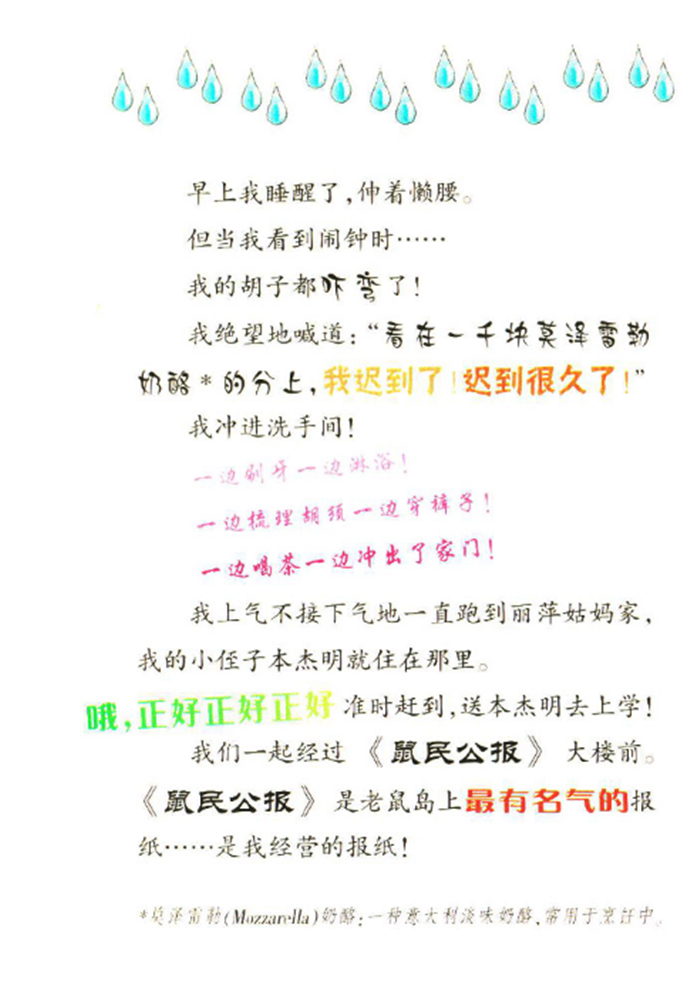 早上我睡醒了,伸着懒腰。
但当我看到闹钟时……
我的胡子都吓弯了!
我绝望地喊道:“看在一千块莫泽雷勒
奶酪*的分上,我迟到了!迟到很久了!”
我冲进洗手间!
一边刷牙一边淋浴!
一边梳理胡须一边穿裤子!
一边喝茶一边冲出了家门!
我上气不接下气地一直跑到丽萍姑妈家,
我的小侄子本杰明就住在那里。
哦,正好正好正好准时赶到,送本杰明去上学!
我们一起经过《鼠民公报》大楼前。
《鼠民公报》是老鼠岛上最有名气的报
纸……是我经营的报纸!
*莫泽雷勒(Mozzarella)奶酪:一种意大利淡味奶酪,常用于烹饪中。